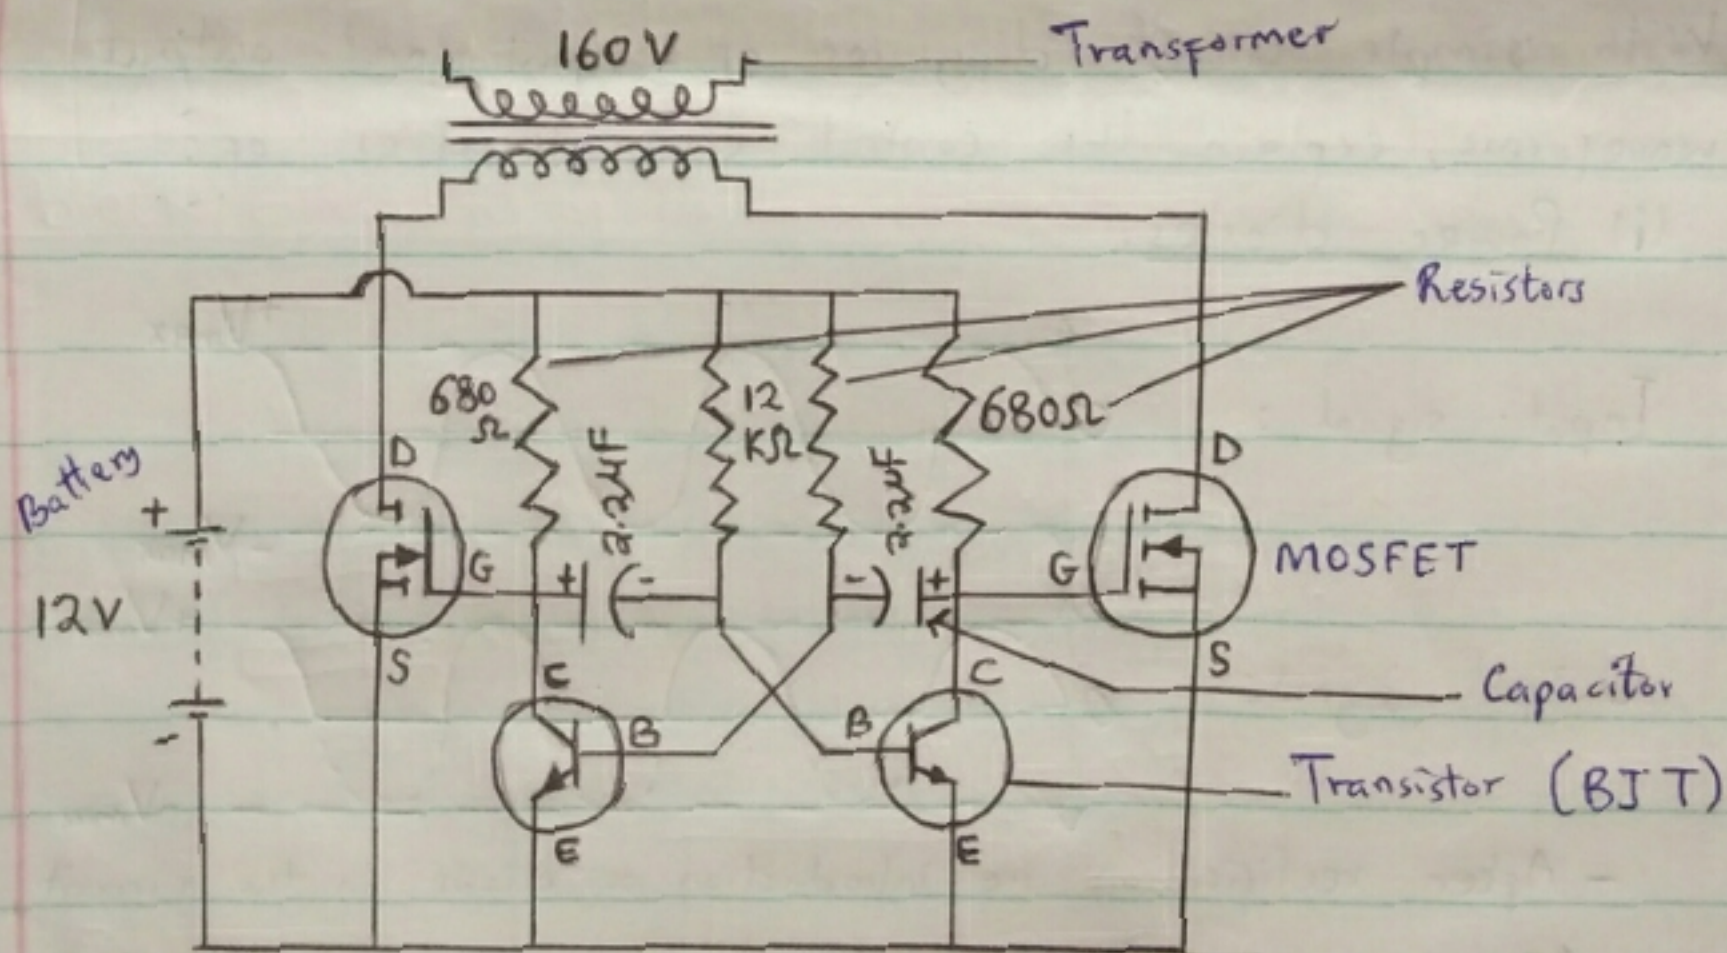 160V
Transformer
Resistors
680
Ω
12
KΩ
680Ω
2.2μF
2.2μF
Battery
+
12V
-
D
G
S
+
-
-
+
D
G
S
MOSFET
C
B
E
C
B
E
Capacitor
Transistor (BJT)